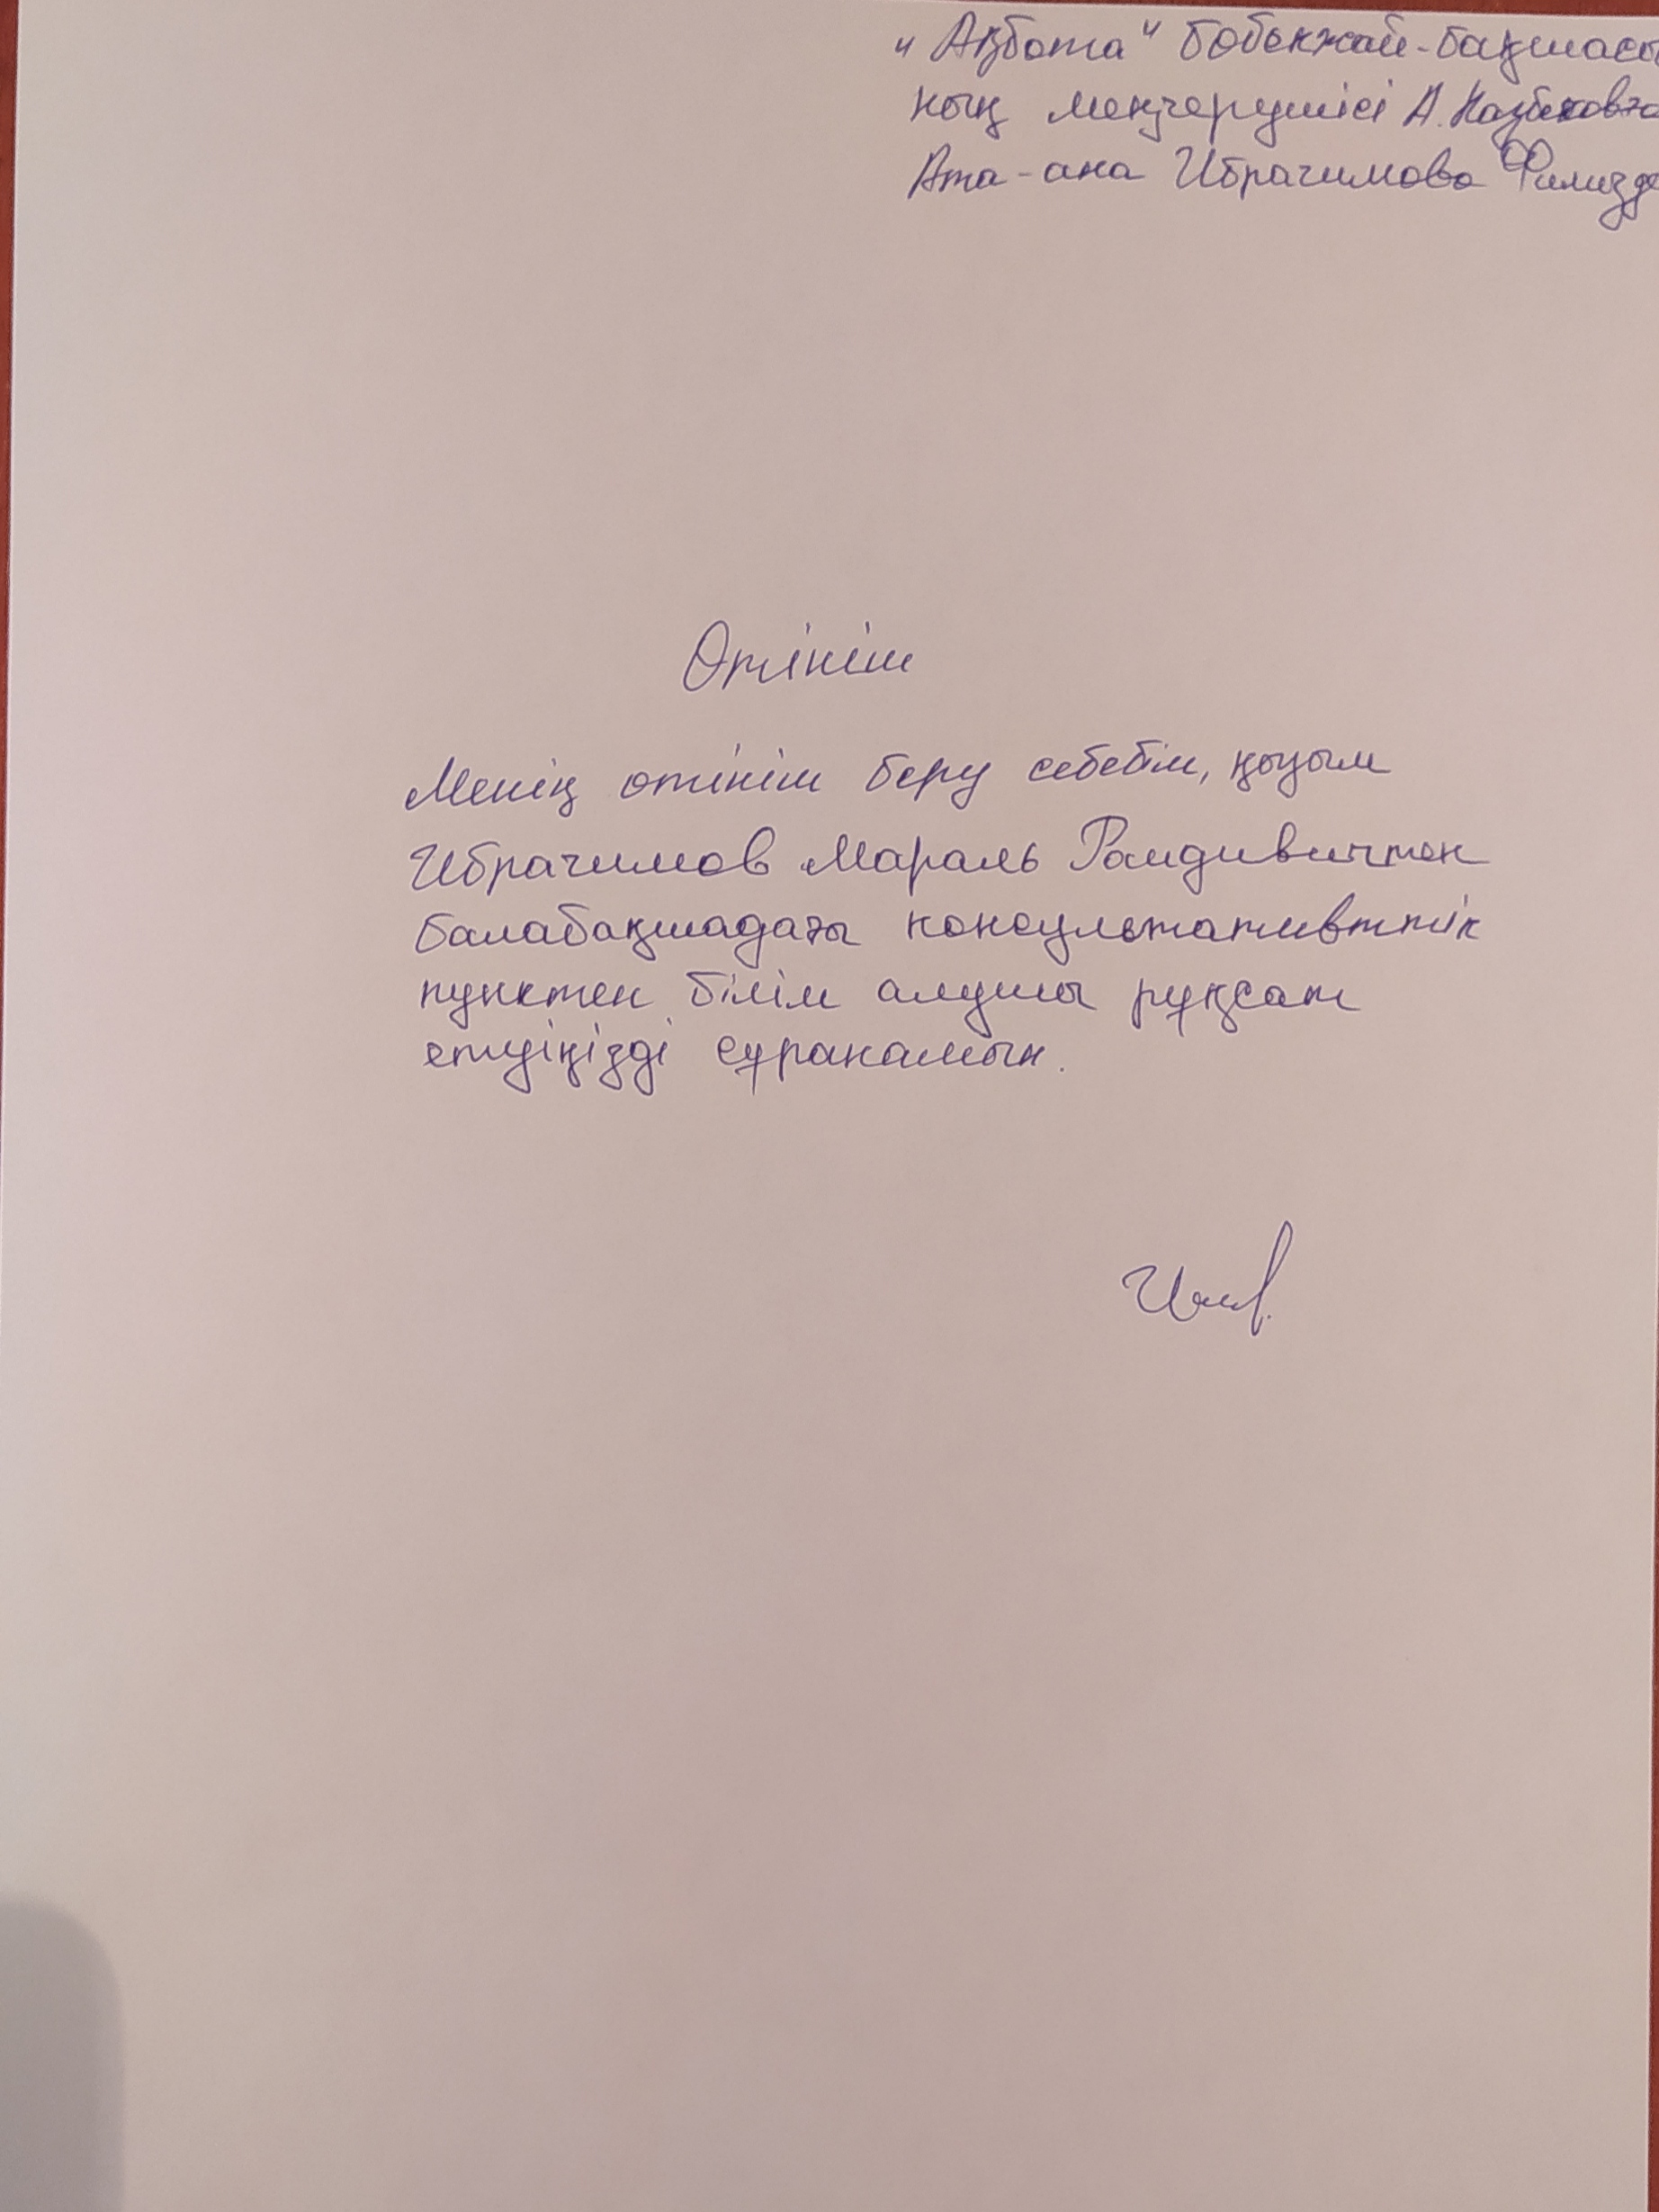 "Ақбота" бөбекжай-бақшасы
ның меңгерушісі А. Казбековаға
Ата-ана Ибрагимова Филизде
Өтініш
Менің өтініш беру себебім, қызым
Ибрагимов Мараль Рашдивичтен
балабақшадағы консультативттік
пунктен білім алушы рұқсат
етуіңізді сұранамын.